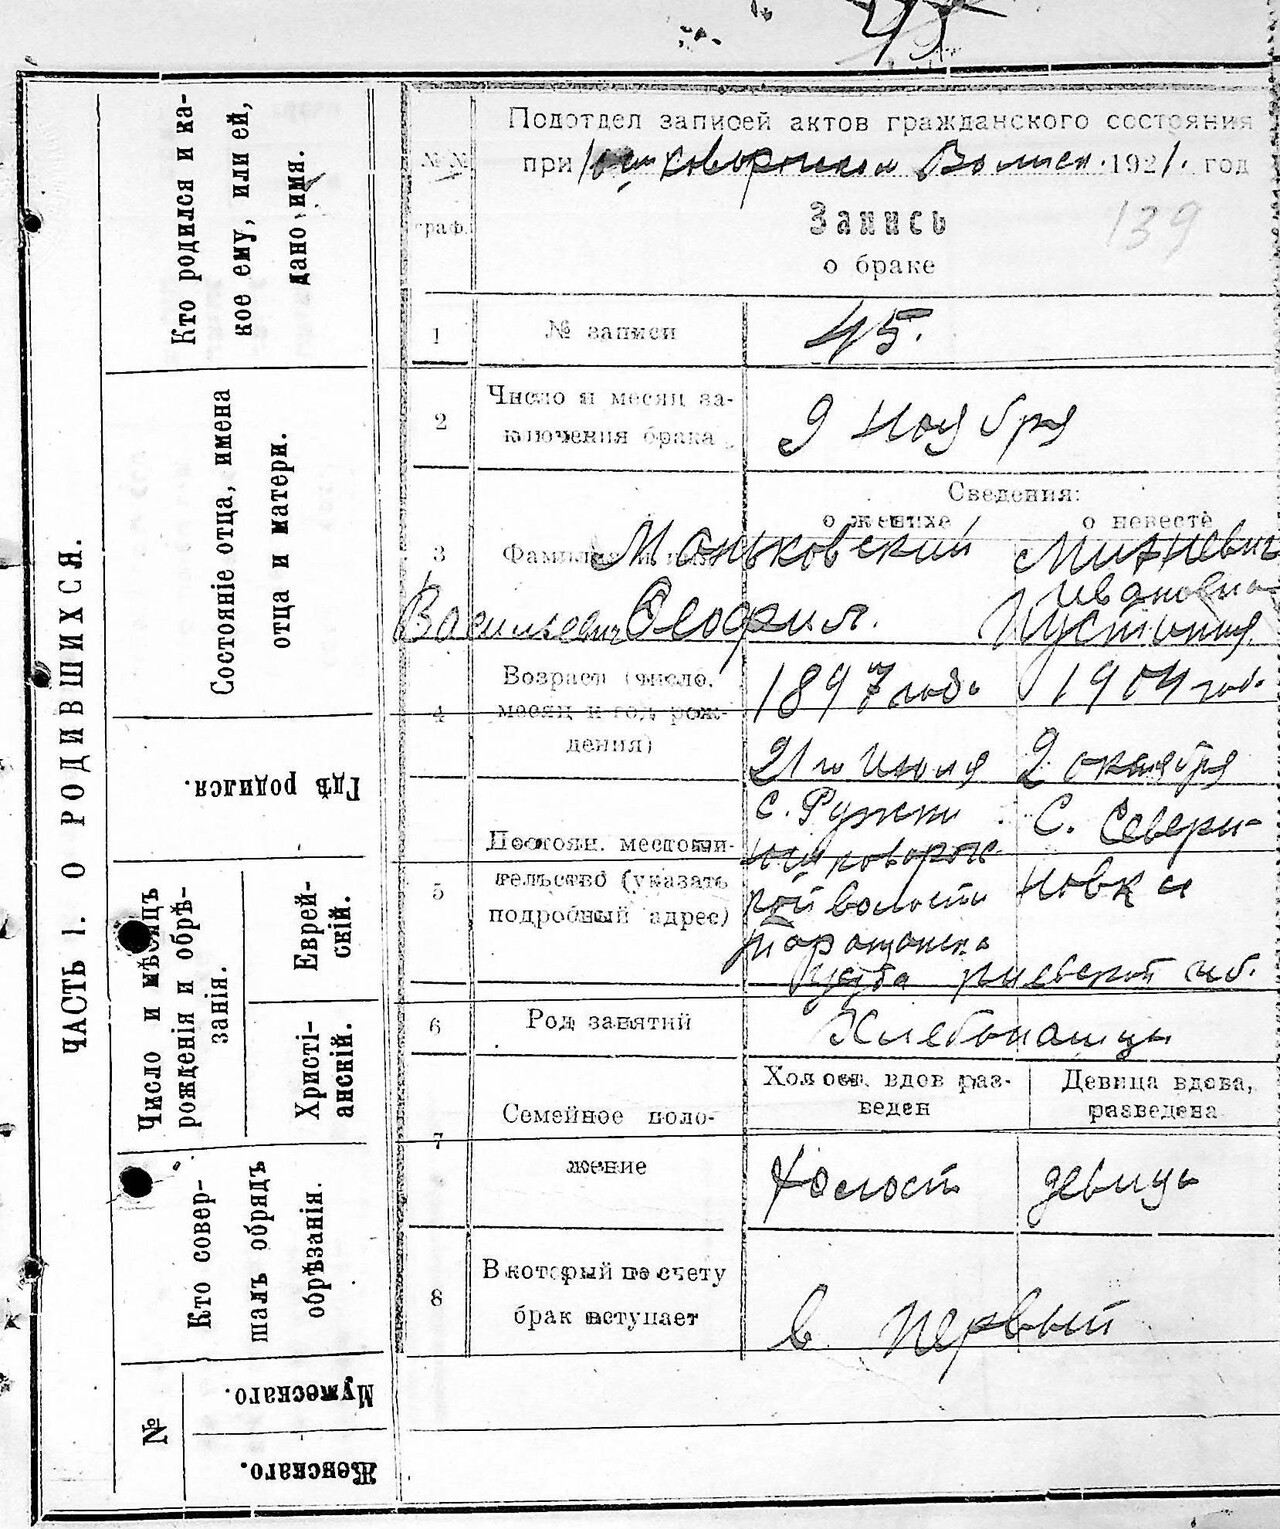 45
ЧАСТЬ 1. О РОДИВШИХСЯ.
Кто родился и ка-
кое ему, или ей,
дано имя.
Состояніе отца, имена
отца и матери.
Гдѣ родился.
Число и мѣсяцъ
рожденія и обрѣ-
занія.
Еврей-
скій.
Христі-
анскій.
Кто совер-
шалъ обрядъ
обрѣзанія.
№
Мужескаго.
Женскаго.
Подотдел записей актов гражданского состояния
при Волисп. 1921. год
№№
граф.
Запись
139
о браке
1 № записи 45.
2 Число и месяц за-
ключения брака 9 Ноября
Сведения:
о женихе о невесте
3 Фамилия и Маньковский Михневич
Ивановна
Васильевич Феофил. Устиния
4 Возраст (число, 1897 года 1904 год.
месяц и год рож-
дения) 21 го Июля 2 октября
5 Постоян. местожи-
тельство (указать
подробный адрес)
с. Ружки С. Севери-
новки
кой волости
Таращанска
уезда киевской губ.
6 Род занятий Хлебопашцы
7 Семейное поло-
жение
Холост, вдов раз-
веден
Девица вдова,
разведена
Холост девица
8 В который по счету
брак вступает в первый